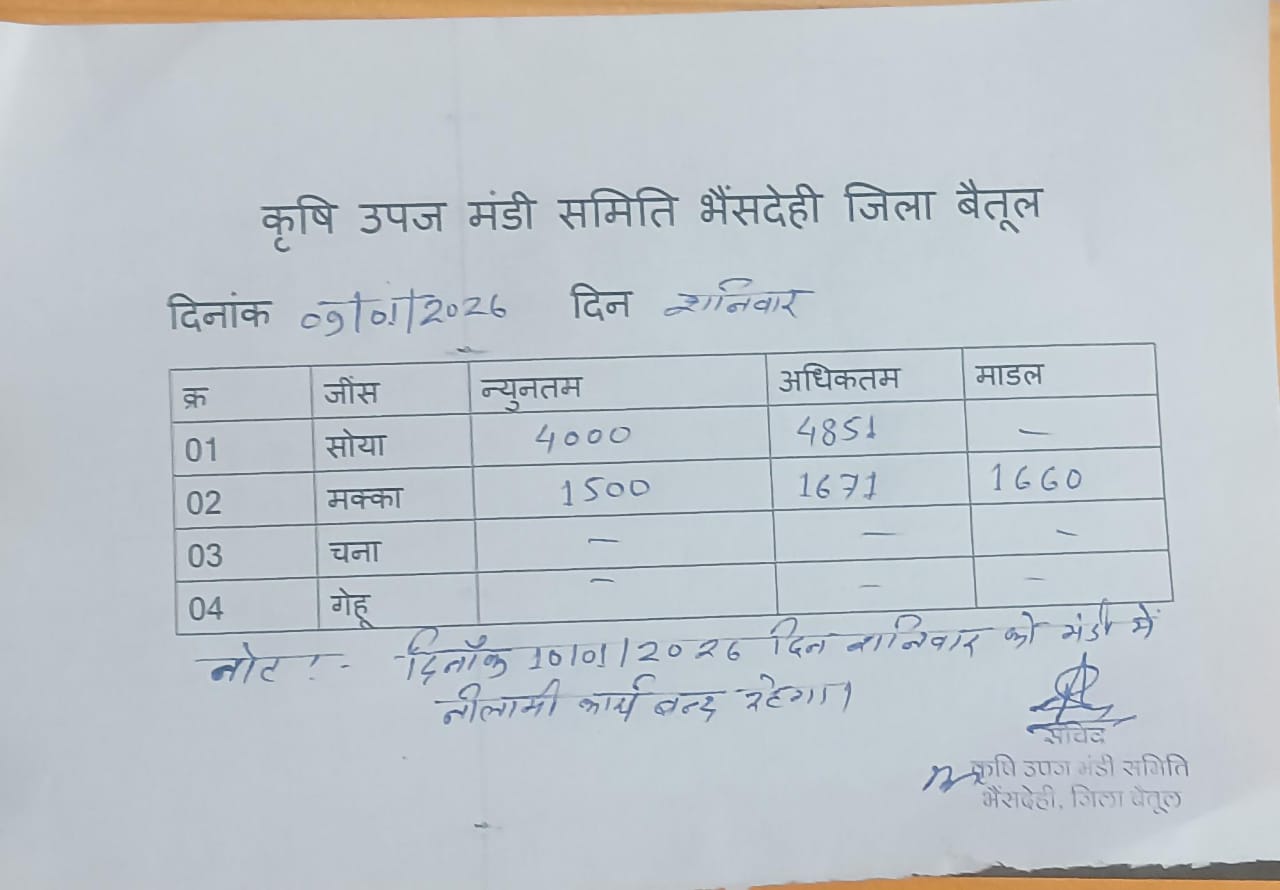 कृषि उपज मंडी समिति भैंसदेही जिला बैतूल
दिनांक 09/01/2026 दिन शनिवार
क्र जींस न्युनतम अधिकतम माडल
01 सोया 4000 4851 –
02 मक्का 1500 1671 1660
03 चना – – –
04 गेहू – – –
नोट :- दिनाँक 10/01/2026 दिन शनिवार को मंडी में
नीलामी कार्य बन्द रहेगा।
सचिव
कृषि उपज मंडी समिति
भैंसदेही, जिला बैतूल